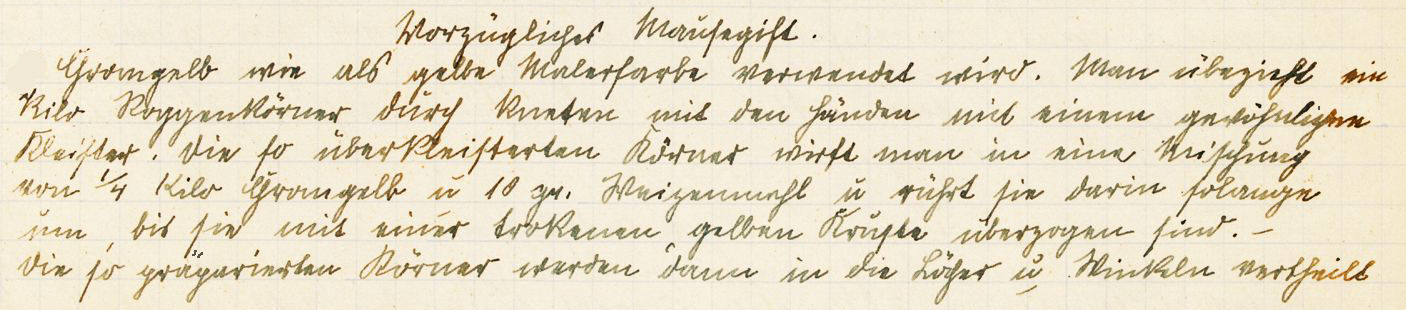 Vorzügliches Mausegift.
Chromgelb wie als gelbe Malerfarbe verwendet wird. Man überzieht ein
Kilo Roggenkörner durch kneten mit den Händen mit einem gewöhnlichen
Kleister. Die so überkleisterten Körner wirft man in eine Mischung
von 1/4 Kilo Chromgelb u 10 gr. Weizenmehl u rührt sie darin solange
um, bis sie mit einer trokenen gelben Kruste überzogen sind. –
Die so präparierten Körner werden dann in die Löcher u Winkeln vertheilt